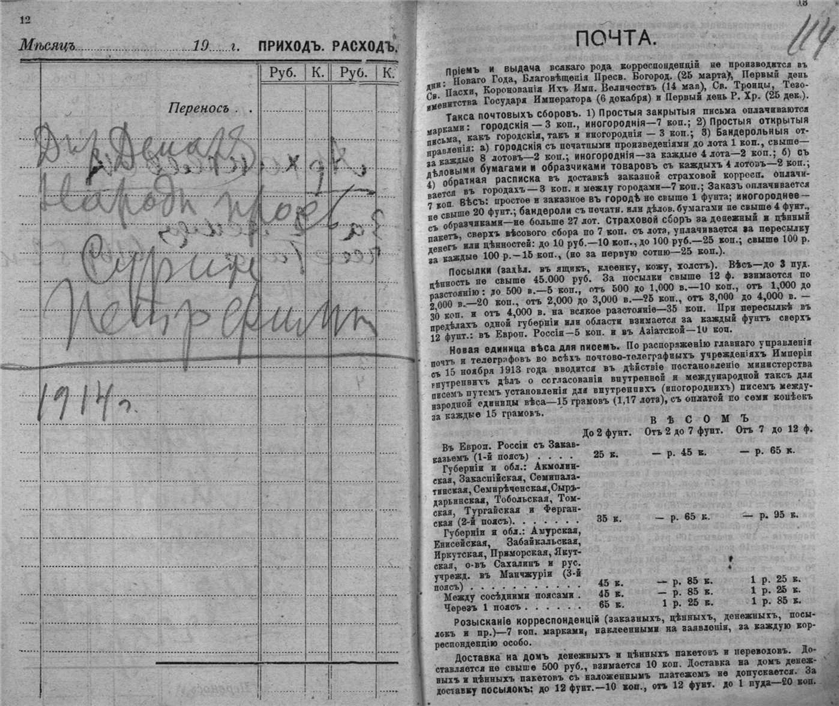 12
Мѣсяцъ 19 г. ПРИХОДЪ. РАСХОДЪ.
Руб. К. Руб. К.
Переносъ . .
Дир Депар
Народн
Петр
1914 г.
13
114
ПОЧТА.
Пріемъ и выдача всякаго рода корреспонденцій не производится въ
дни: Новаго Года, Благовѣщенія Пресв. Богород. (25 марта), Первый день
Св. Пасхи, Коронованія Ихъ Имп. Величествъ (14 мая), Св. Троицы, Тезо-
именитства Государя Императора (6 декабря) и Первый день Р. Хр. (25 дек.).
Такса почтовыхъ сборовъ. 1) Простыя закрытыя письма оплачиваются
марками: городскія — 3 коп., иногороднія—7 коп.; 2) Простыя открытыя
письма, какъ городскія, такъ и иногороднія — 3 коп.; 3) Бандерольныя от-
правленія: а) городскія съ печатными произведеніями до лота 1 коп., свыше—
за каждые 8 лотовъ—2 коп.; иногороднія—за каждые 4 лота—2 коп.; б) съ
дѣловыми бумагами и образчиками товаровъ съ каждыхъ 4 лотовъ—2 коп.;
4) обратная расписка въ доставкѣ заказной страховой корресп. оплачи-
вается въ городахъ—3 коп. и между городами—7 коп.; Заказъ оплачивается
7 коп. Вѣсъ: простое и заказное въ городѣ не свыше 1 фунта; иногороднее—
не свыше 20 фунт.; бандероли съ печатн. или дѣлов. бумагами не свыше 4 фунт.,
съ образчиками—не больше 27 лот. Страховой сборъ за денежный и цѣнный
пакетъ, сверхъ вѣсового сбора по 7 коп. съ лота, уплачивается за пересылку
денегъ или цѣнностей: до 10 руб.—10 коп., до 100 руб.—25 коп.; свыше 100 р.
за каждые 100 р.—15 коп., (но за первую сотню—25 коп.).
Посылки (задѣл. въ ящикъ, клеенку, кожу, холстъ). Вѣсъ—до 3 пуд.
цѣнность не свыше 45.000 руб. За посылки свыше 12 ф. взимается по
разстоянію: до 500 в.—5 коп., отъ 500 до 1,000 в.—10 коп., отъ 1,000 до
2,000 в.—20 коп., отъ 2,000 до 3,000 в.—25 коп., отъ 3,000 до 4,000 в. —
30 коп. и отъ 4,000 в. на всякое разстояніе—35 коп. При пересылкѣ въ
предѣлахъ одной губерніи или области взимается за каждый фунтъ сверхъ
12 фунт.: въ Европ. Россіи—5 коп. и въ Азіатской—10 коп.
Новая единица вѣса для писемъ. По распоряженію главнаго управленія
почтъ и телеграфовъ во всѣхъ почтово-телеграфныхъ учрежденіяхъ Имперіи
съ 15 ноября 1913 года вводится въ дѣйствіе постановленіе министерства
внутреннихъ дѣлъ о согласованіи внутренней и международной таксъ для
писемъ путемъ установленія для внутреннихъ (иногороднихъ) писемъ между-
народной единицы вѣса—15 грамовъ (1,17 лота), съ оплатой по семи копѣекъ
за каждые 15 грамовъ.
В Ѣ С О М Ъ
До 2 фунт. Отъ 2 до 7 фунт. Отъ 7 до 12 ф.
Въ Европ. Россіи съ Закав-
казьемъ (1-й поясъ) . . . . 25 к. — р. 45 к. — р. 65 к.
Губерніи и обл.: Акмолин-
ская, Закаспійская, Семипала-
тинская, Семирѣченская, Сыръ-
дарьинская, Тобольская, Том-
ская, Тургайская и Ферган-
ская (2-й поясъ). . . . . . . 35 к. — р. 65 к. — р. 95 к.
Губерніи и обл.: Амурская,
Енисейская, Забайкальская,
Иркутская, Приморская, Якут-
ская, о-въ Сахалинъ и рус.
учрежд. въ Манчжуріи (3-й
поясъ) . . . . . . . . . . . 45 к. — р. 85 к. 1 р. 25 к.
Между сосѣдними поясами . 45 к. — р. 85 к. 1 р. 25 к.
Черезъ 1 поясъ . . . . . . . 65 к. 1 р. 25 к. 1 р. 85 к.
Розысканіе корреспонденцій (заказныхъ, цѣнныхъ, денежныхъ, посы-
локъ и пр.)—7 коп. марками, наклеенными на заявленія, за каждую кор-
респонденцію особо.
Доставка на домъ денежныхъ и цѣнныхъ пакетовъ и переводовъ. До-
ставляется не свыше 500 руб., взимается 10 коп. Доставка на домъ денеж-
ныхъ и цѣнныхъ пакетовъ съ наложеннымъ платежемъ не допускается. За
доставку посылокъ: до 12 фунт.—10 коп., отъ 12 фунт. до 1 пуда—20 коп.